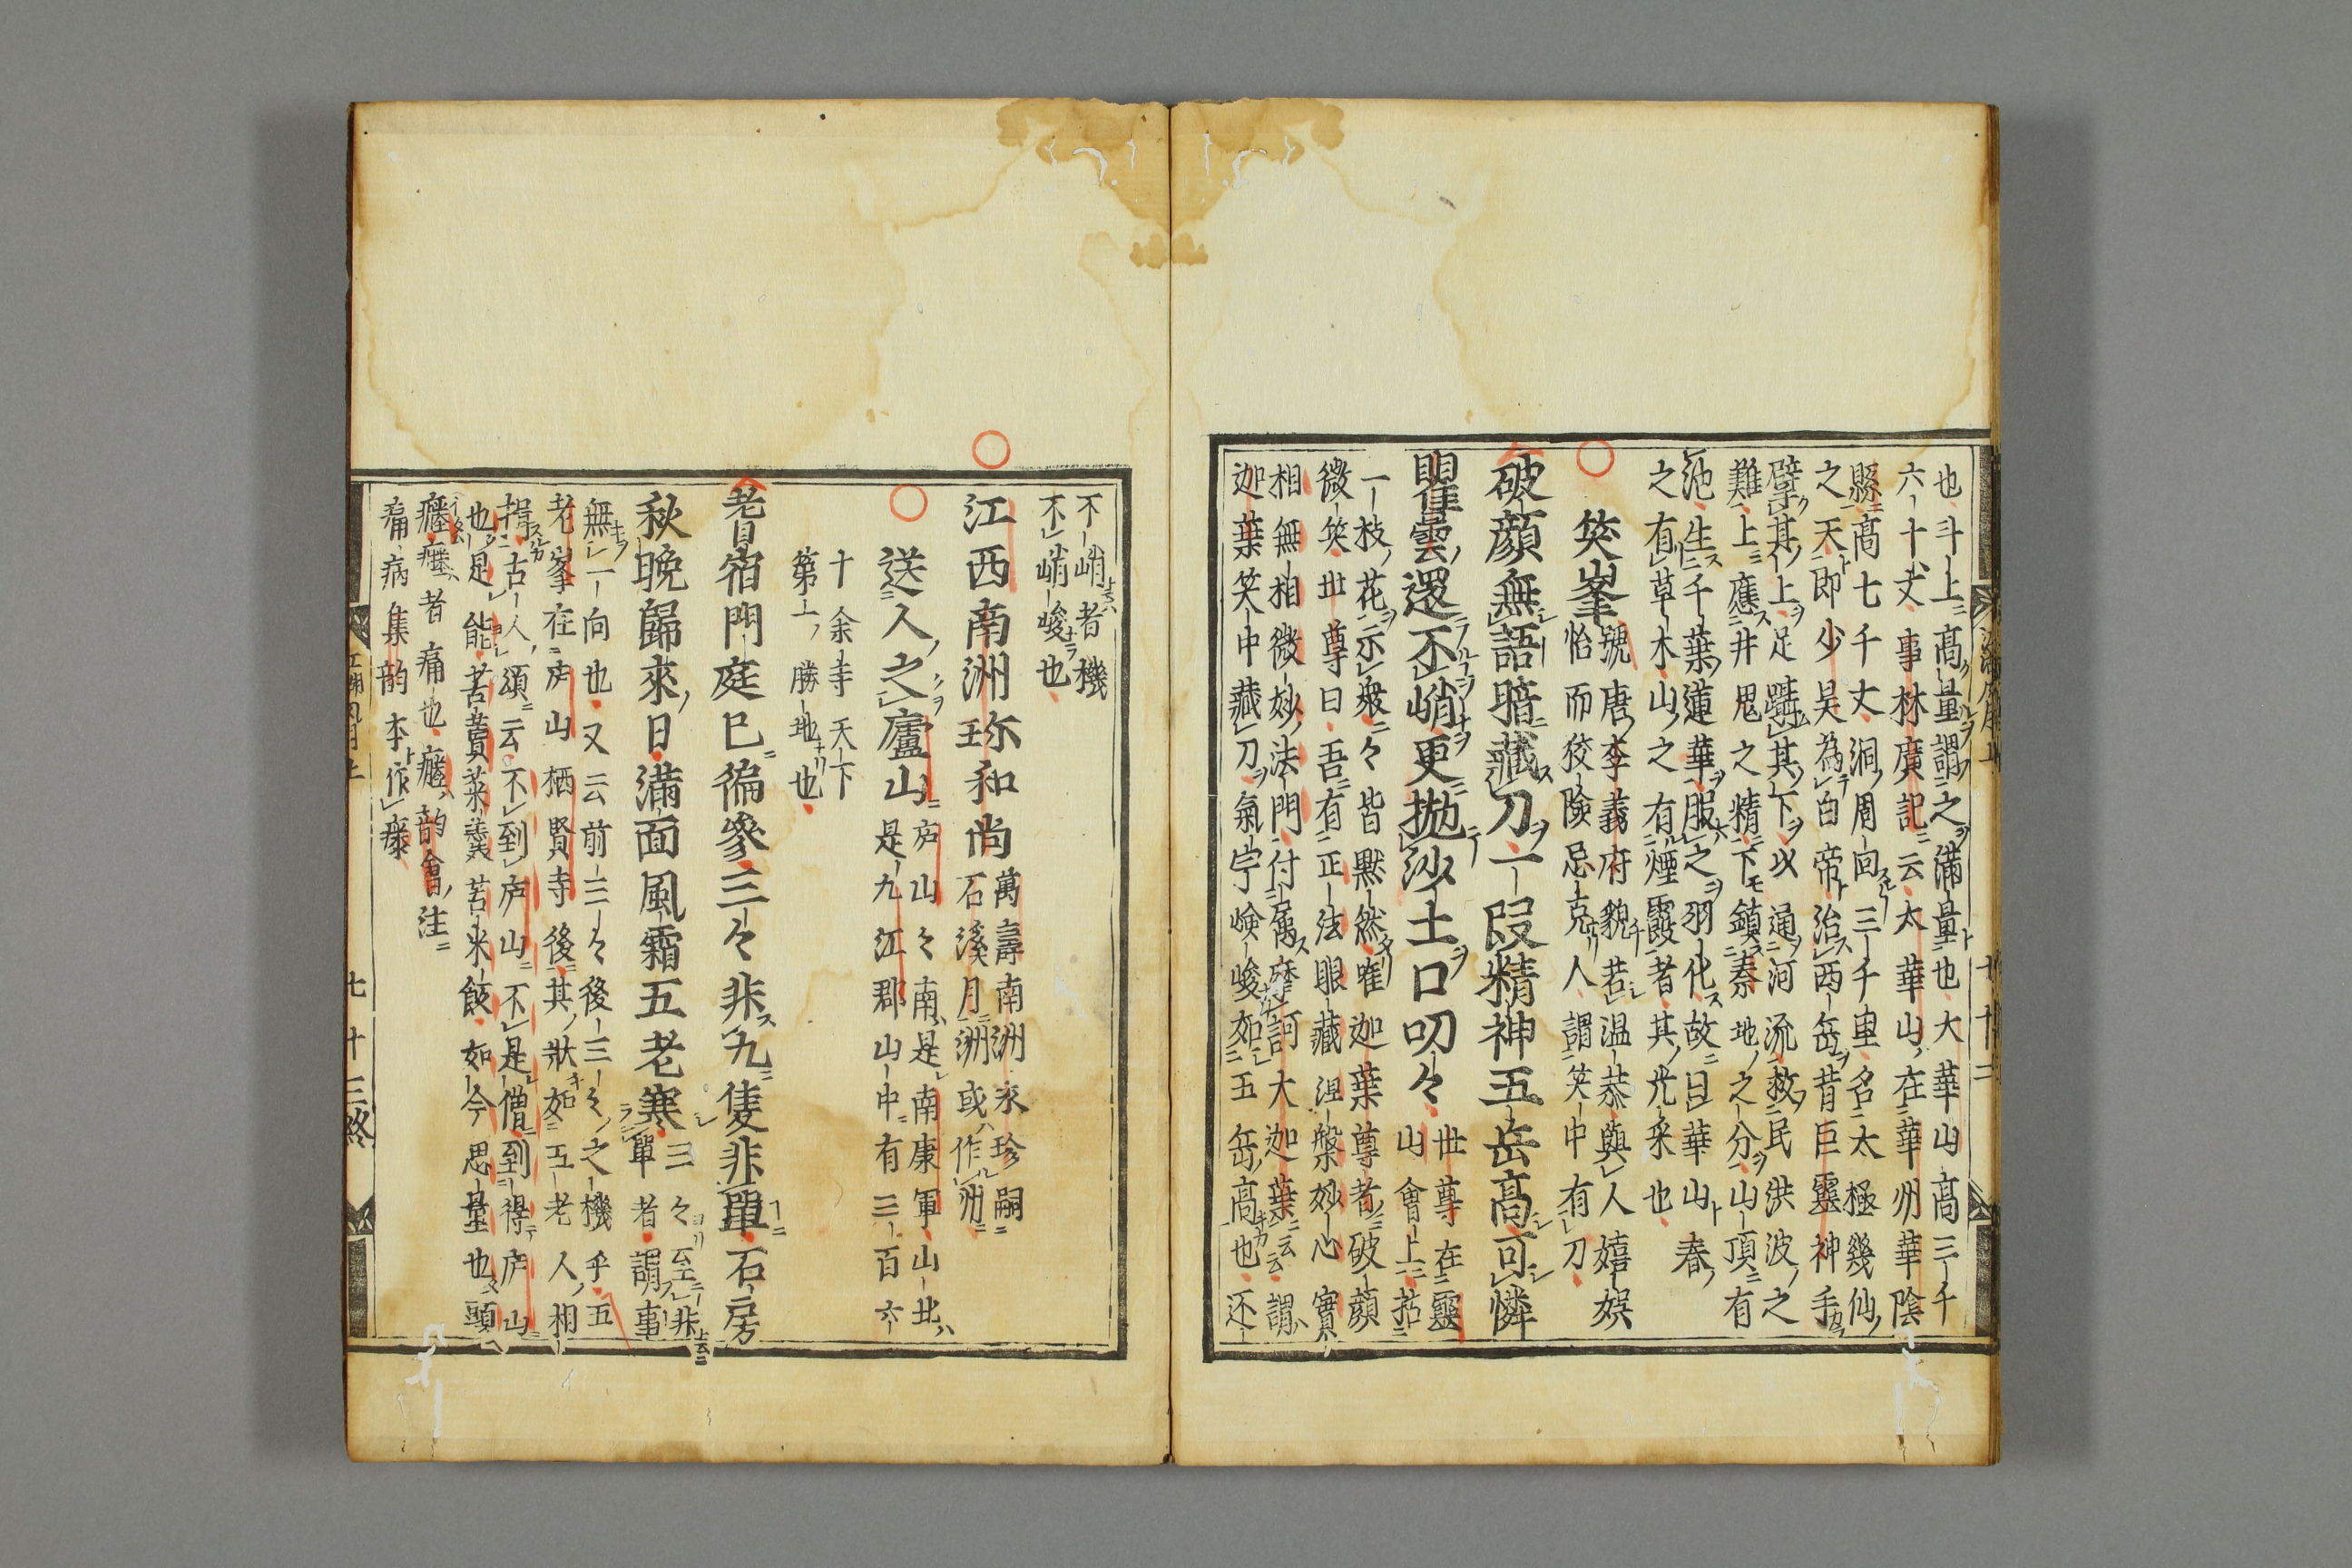 也斗上高量謂之滿量也大華山高三千
六十丈事林廣記云太華山在華州華陰
縣高七千丈洞周回三千里名太極幾仙
之天即少昊為白帝治西岳昔巨靈神手
擘其上足蹺其下以通河流救民洪波之
難上應井鬼之精下鎮秦地之分山頂有
池生千葉蓮華服之羽化故曰華山春
之有草木山之有煙霞者其光采也
笑峯
號唐李義府貌若温恭與人嬉娯
怡而狡險忌克人謂笑中有刀
破顔無語暗藏刀一段精神五岳高可憐
瞿曇還不峭更抛沙土口叨々
世尊在靈
山會上拈
一枝花示衆々皆默然唯迦葉尊者破顔
微笑世尊曰吾有正法眼藏涅槃妙心實
相無相微妙法門付属摩訶大迦葉云云謂
迦葉笑中藏刀氣宇嶮峻如五岳高也还
不峭者機
不峭峻也
江西南洲珎和尚
萬壽南洲永珍嗣
石溪月洲或作洲
送人之廬山
庐山々南是南康軍山北
是九江郡山中有三百六
十余寺天下
第一勝地也
耆宿門庭已徧參三々非九隻非單石房
秋晩歸來日滿面風霜五老寒
三々至非
單者謂事
無一向也又云前三々後三々之機乎五
老峯在庐山栖賢寺後其狀如五老人相
揖古人頌云不到庐山不是僧到得庐山
也是能苦蕒菜羹苦米飯如今思量也頭
痛病集韵本作
七十三終